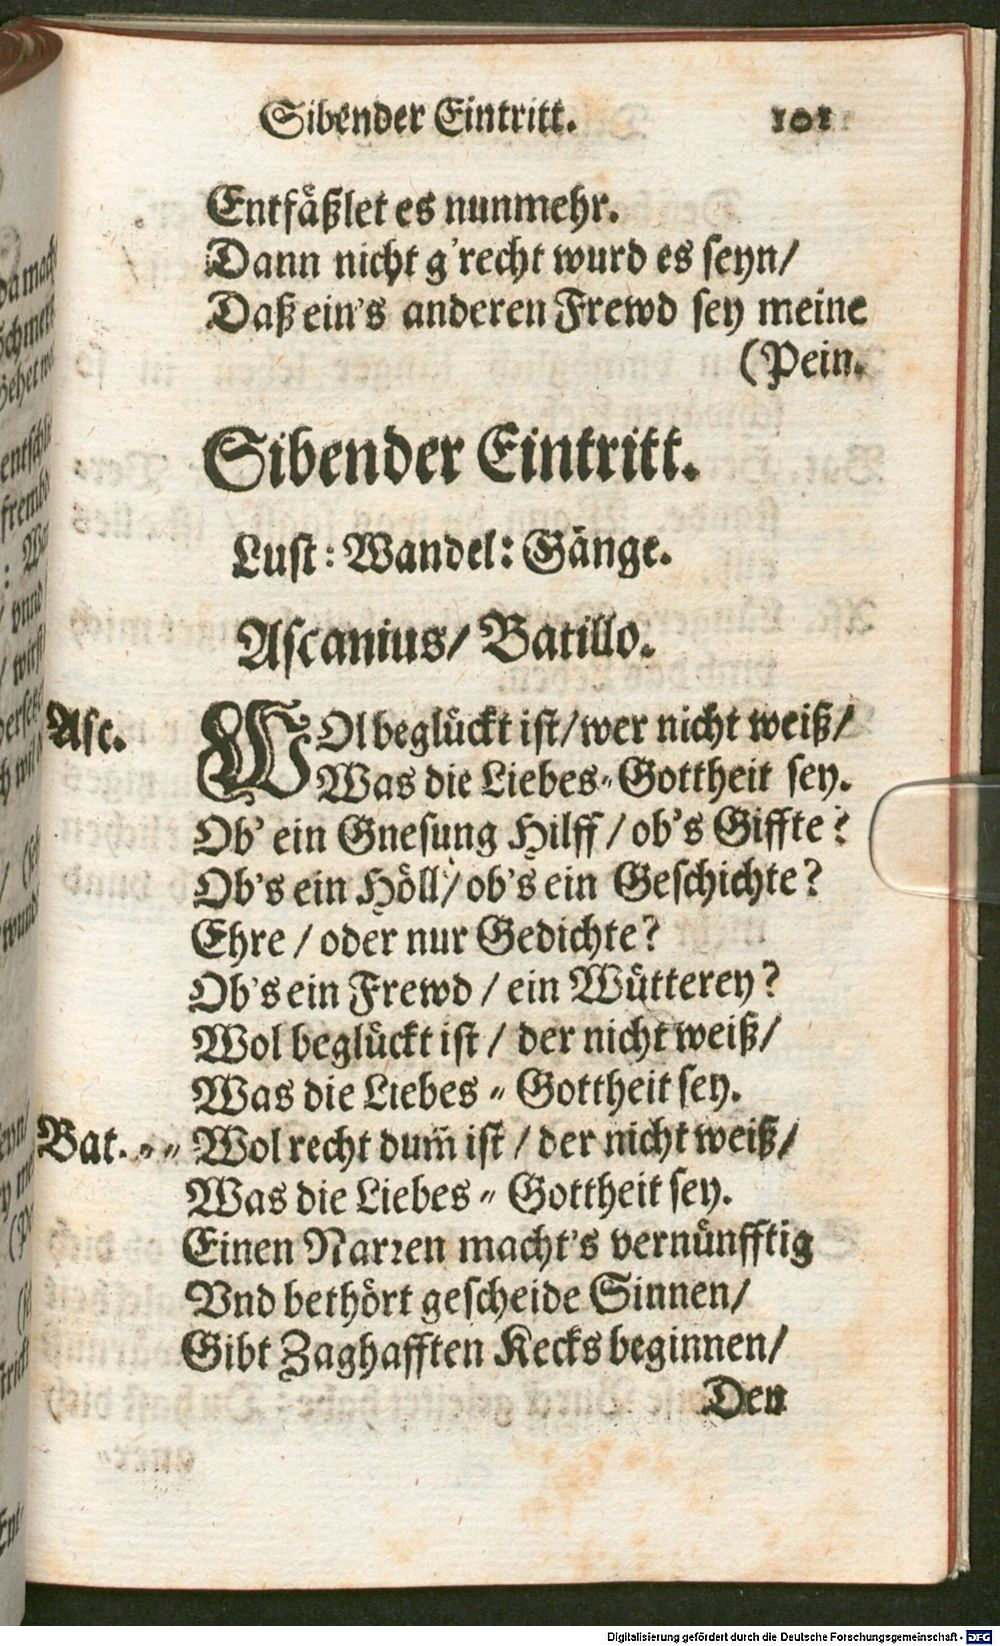 Sibender Eintritt. 101
Entfäßlet es nunmehr.
Dann nicht g'recht wurd es seyn/
Daß ein's anderen Frewd sey meine
(Pein.
Sibender Eintritt.
Lust: Wandel: Gänge.
Ascanius/ Batillo.
Asc. WOl beglückt ist/ wer nicht weiß/
Was die Liebes-Gottheit sey.
Ob' ein Gnesung Hilff / ob's Giffte?
Ob's ein Höll/ ob's ein Geschichte?
Ehre / oder nur Gedichte?
Ob's ein Frewd / ein Wütterey?
Wol beglückt ist / der nicht weiß/
Was die Liebes-Gottheit sey.
Bat. Wol recht dum̃ ist / der nicht weiß/
Was die Liebes-Gottheit sey.
Einen Narren macht's vernünfftig
Vnd bethört gescheide Sinnen/
Gibt Zaghafften Kecks beginnen/
Den
Digitalisierung gefördert durch die Deutsche Forschungsgemeinschaft - DFG